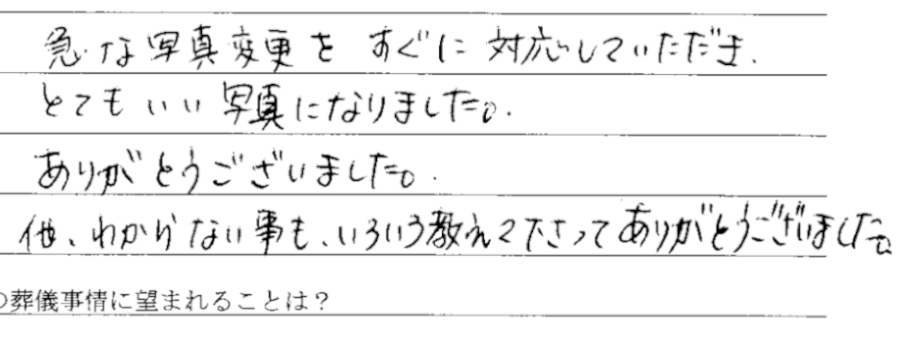 急な写真変更を すぐに 対応していただき.
とてもいい 写真になりました。.
ありがとうございました。.
他、わからない事も、いろいろ教えて下さってありがとうございました。
の葬儀事情に望まれることは？